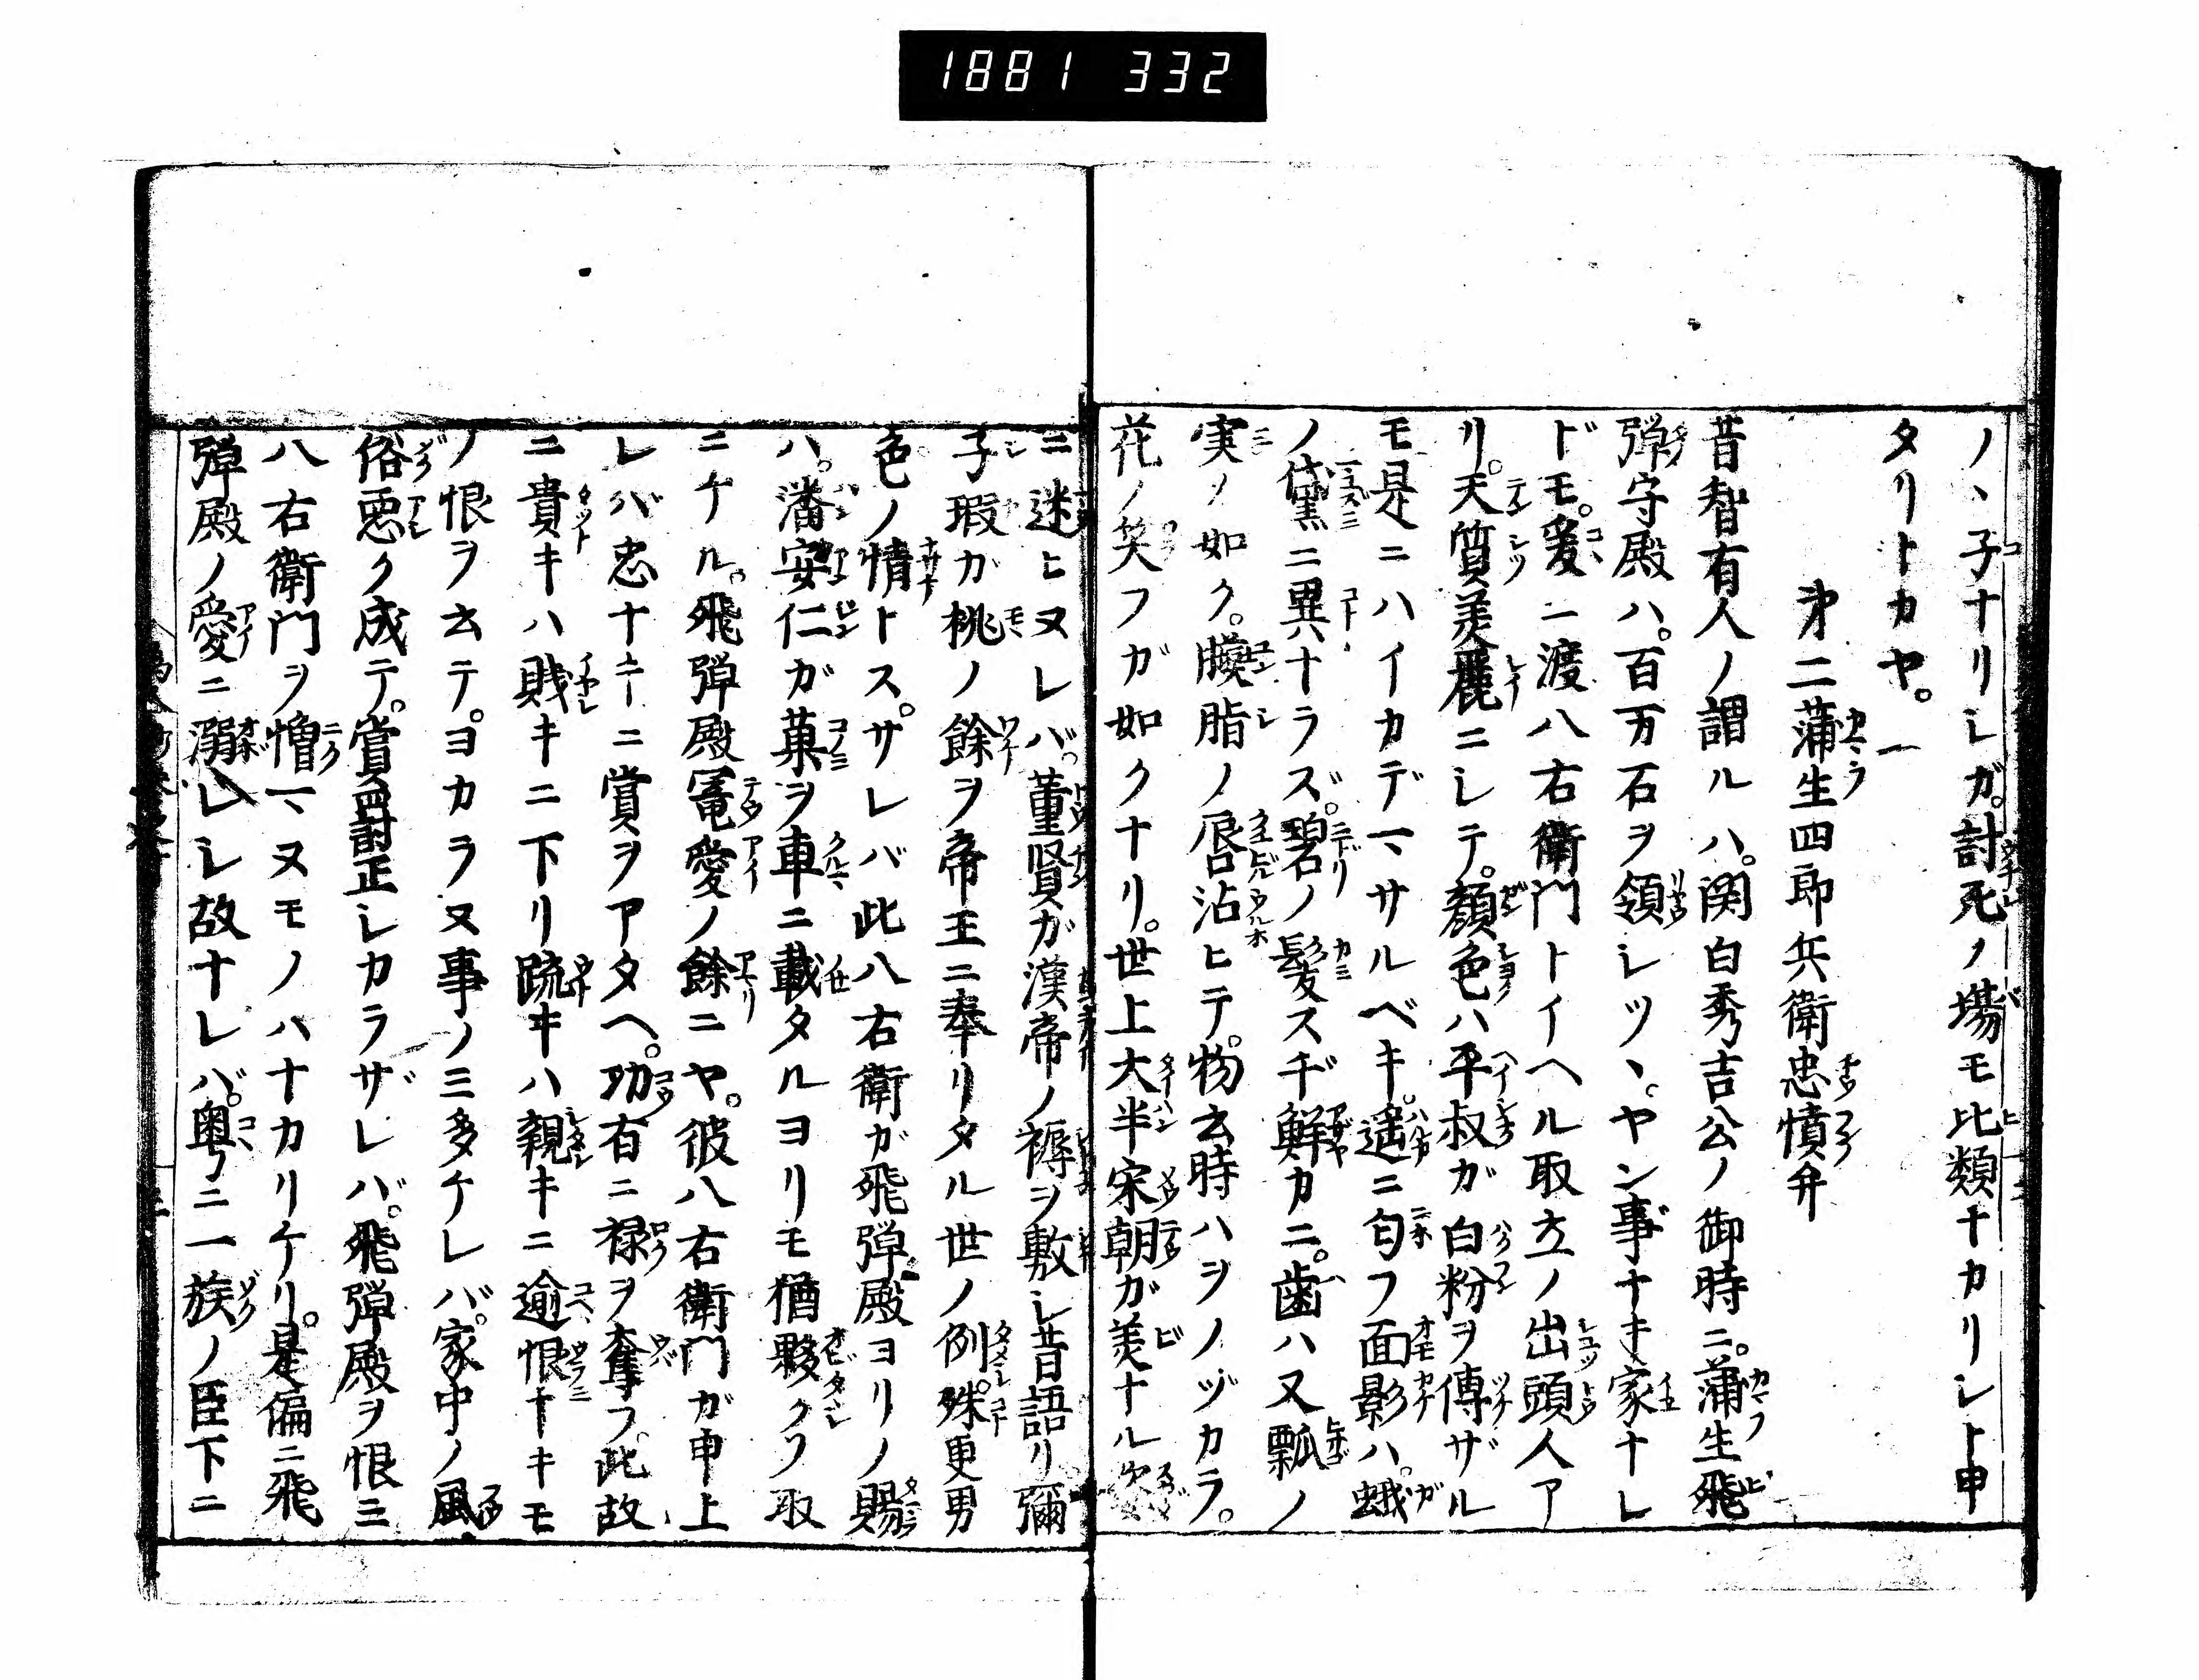 1881 332
ノヽ子ナリシガ。討死ノ場モ比類ナカリシト申
タリトカヤ。
㐧二蒲生四郎兵衛忠憤弁
昔智有人ノ謂ルハ。関白秀吉公ノ御時ニ。蒲生飛
弾守殿ハ。百万石ヲ領シツヽ。ヤン事ナキ家ナレ
ドモ。爰ニ渡八右衛門トイヘル取立ノ出頭人ア
リ。天質美麗ニシテ。顔色ハ平叔ガ白粉ヲ傳ザル
モ是ニハイカデマサルベキ。遥ニ匂フ面影ハ。蛾
ノ黛ニ異ナラズ。碧ノ髪スヂ鮮カニ。歯ハ又瓢ノ
実ノ如ク。臙脂ノ唇沾ヒテ。物云時ハヲノヅカラ。
花ノ笑フガ如クナリ。世上大半宋朝ガ美ナル姿
ニ迷ヒヌレバ。董賢ガ漢帝ノ褥ヲ敷シ昔語リ彌
子瑕ガ桃ノ餘ヲ帝王ニ奉リタル世ノ例。殊更男
色ノ情トス。サレバ此八右衛ガ飛弾殿ヨリノ賜
ハ。潘安仁ガ菓ヲ車ニ載タルヨリモ猶夥クフ取
ニケル。飛弾殿寵愛ノ餘ニヤ。彼八右衛門ガ申上
レバ忠ナキニ賞ヲアタヘ。功有ニ禄ヲ奪フ。此故
ニ貴キハ賎キニ下リ疏キハ親キニ逾恨ナキモ
ノ恨ヲ云テ。ヨカラヌ事ノミ多ケレバ。家中ノ風
俗悪ク成テ。賞罸正シカラザレバ。飛弾殿ヲ恨ミ
八右衛門ヲ憎マヌモノハナカリケリ。是偏ニ飛
弾殿ノ愛ニ溺レシ故ナレバ。粤ニ一族ノ臣下ニ